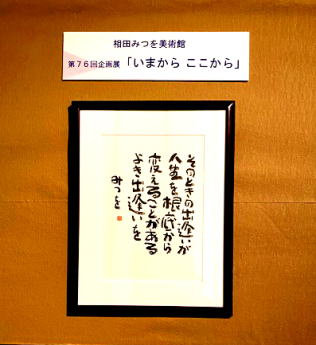 相田みつを美術館
第76回企画展「いまから ここから」
そのときの出逢いが
人生を根底から
変えることがある
よき出逢いを
みつを